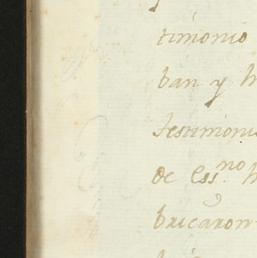 timonio
ban y
testimonio
de Ess.no
bricaron